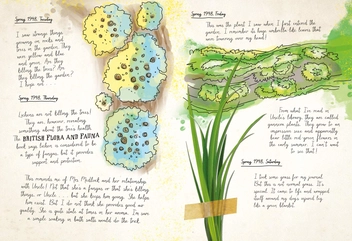 Spring 1948, Tuesday
I saw strange things
growing on rocks and
trees in the garden, they
was yellow and blue
and green. Are they
killing the trees? Are
they killing the garden?
I hope not.
Spring 1948, Thursday
Lichens are not killing the trees!
They are, however, revealing
something about the tree's health.
The BRITISH FLORA AND FAUNA
book says lichen is considered to be
a type of fungus, but it provides
support and protection.
This reminds me of Mrs. Medlock and her relationship
with Uncle! Not that she's a fungus or that she's killing
things, or Uncle but she keeps him going. She helps
him cook. But I do not think she provides good air
quality. She is quite stale at times in her warmth. I'm sure
a simple seating in both walls would do the trick.
Spring 1948, Friday
This was the plant I saw when I first entered the
garden. I remember its large umbrella like leaves that
was towering over my head!
From what I've read in
Uncle's library, they are called
gunnera plants. They grow to an
impressive size and apparently
bear little red green flowers in
the early summer. I can't wait
to see that!
Spring 1948, Saturday
I took some grass for my journal.
But this is not normal grass. It's
special. It came to life and wrapped
itself around my dad's injured leg
like a green blanket!